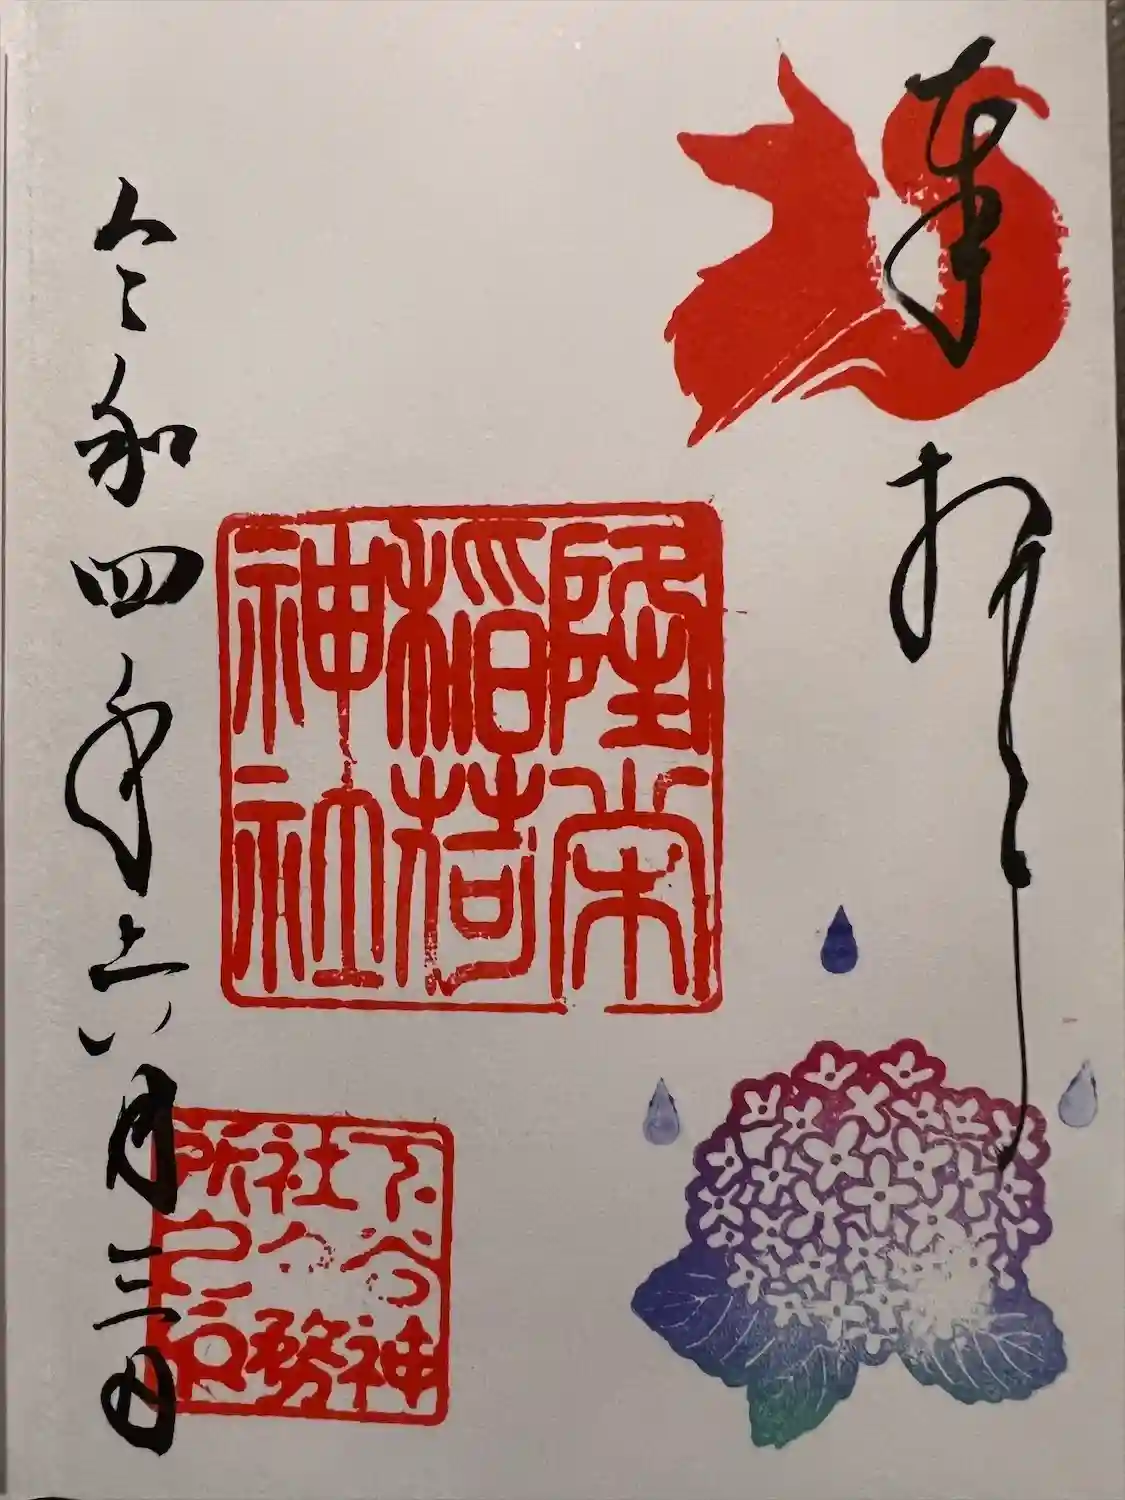 奉拝
隆栄
稲荷
神社
下谷神
社々務
所之印
令和四年六月三日